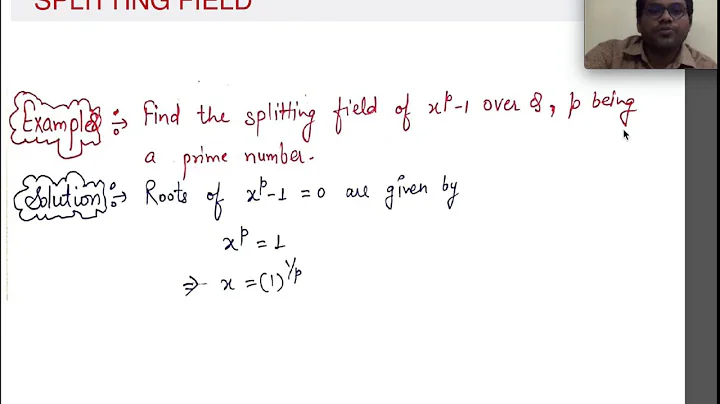 SPLITTING FIELD
Example :→ Find the splitting field of x^p-1 over Q, p being
a prime number.
Solution :→ Roots of x^p-1=0 are given by
x^p = 1
⇒ x = (1)^{1/p}